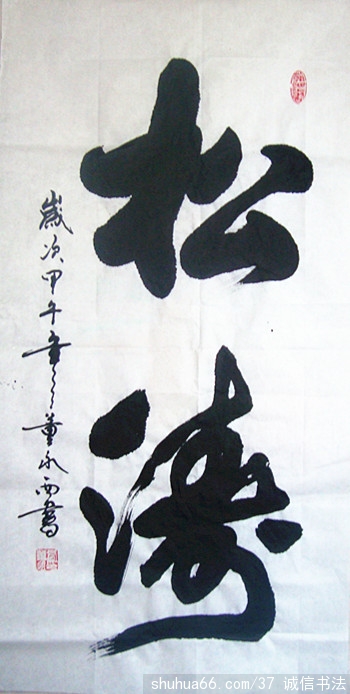 松
濤
歲次甲午年董永西書
shuhua66.com/37 诚信书法